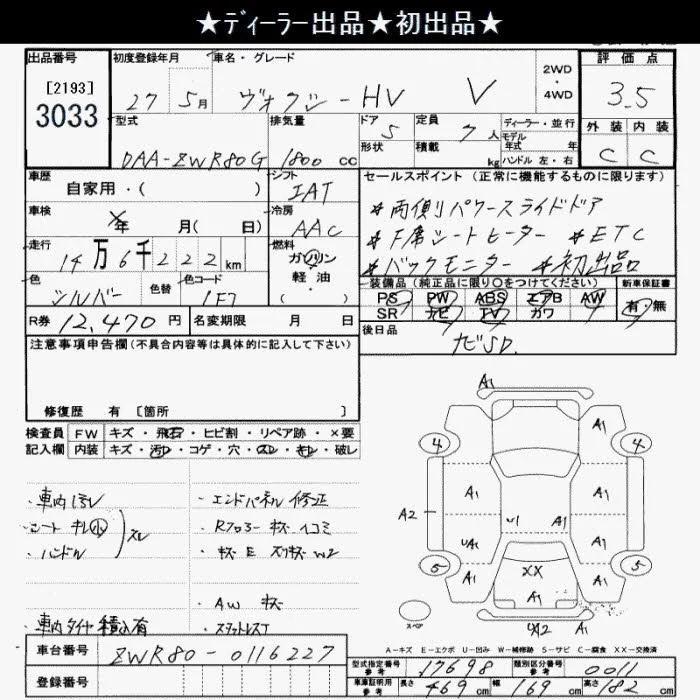 ★ディーラー出品★初出品★
出品番号 [2193] 3033
初度登録年月 27 5月
車名・グレード ヴォクシーHV V
2WD・4WD
評価点 3.5
外装 内装
C C
型式 DAA-ZWR80G
排気量 1800 cc
ドア 5
形状
定員 7人
積載 kg
ディーラー・並行
モデル年式 年
ハンドル 左・右
車歴 自家用・( )
シフト IAT
車検 年 月( 日)
冷房 AAC
走行 14万6千222km
燃料 ガソリン 軽・油 ( )
色 シルバー 色替 色コード 1F7
セールスポイント(正常に機能するものに限ります)
*両側パワースライドドア
*F席シートヒーター *ETC
*バックモニター *初出品
装備品(純正品に限り○をつけてください)
PS PW ABS エアB AW
SR ナビ TV カワ
新車保証書 有・無
R券 12,470円 名変期限 月 日
後日品 ナビSD.
注意事項申告欄(不具合内容等は具体的に記入して下さい)
修復歴 有 [箇所 ]
検査員 FW キズ・飛石・ヒビ割・リペア跡・×要
記入欄 内装 キズ・汚レ・コゲ・穴・スレ・キレ・破レ
・車内汚レ
・シート キレ小
・ハンドル スレ
車内タイヤ積込有
・エンドパネル 修正
・Rフロアー キズ ヘコミ
・キズ E スリキズ W2
・AW キズ
・スタッドレス
A1
4 A1 4
A1 A1
A2
U1 A1
UA1 A1
5 XX 5
A1 A1 A1
4A2 A1
スペア
A-キズ E-エクボ U-凹み W-補修跡 S-サビ C-腐食 XX-交換済
車台番号 ZWR80-0116227
登録番号
型式指定番号 参考 17698 類別区分番号 参考 0011
車庫証明用 参考 長さ 469cm 幅 169cm 高さ 182cm